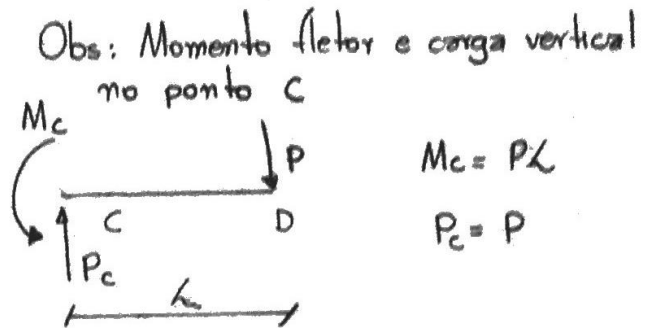 Obs: Momento fletor e carga vertical
no ponto C
Mc
P
Mc = PL
C
D
Pc = P
Pc
L